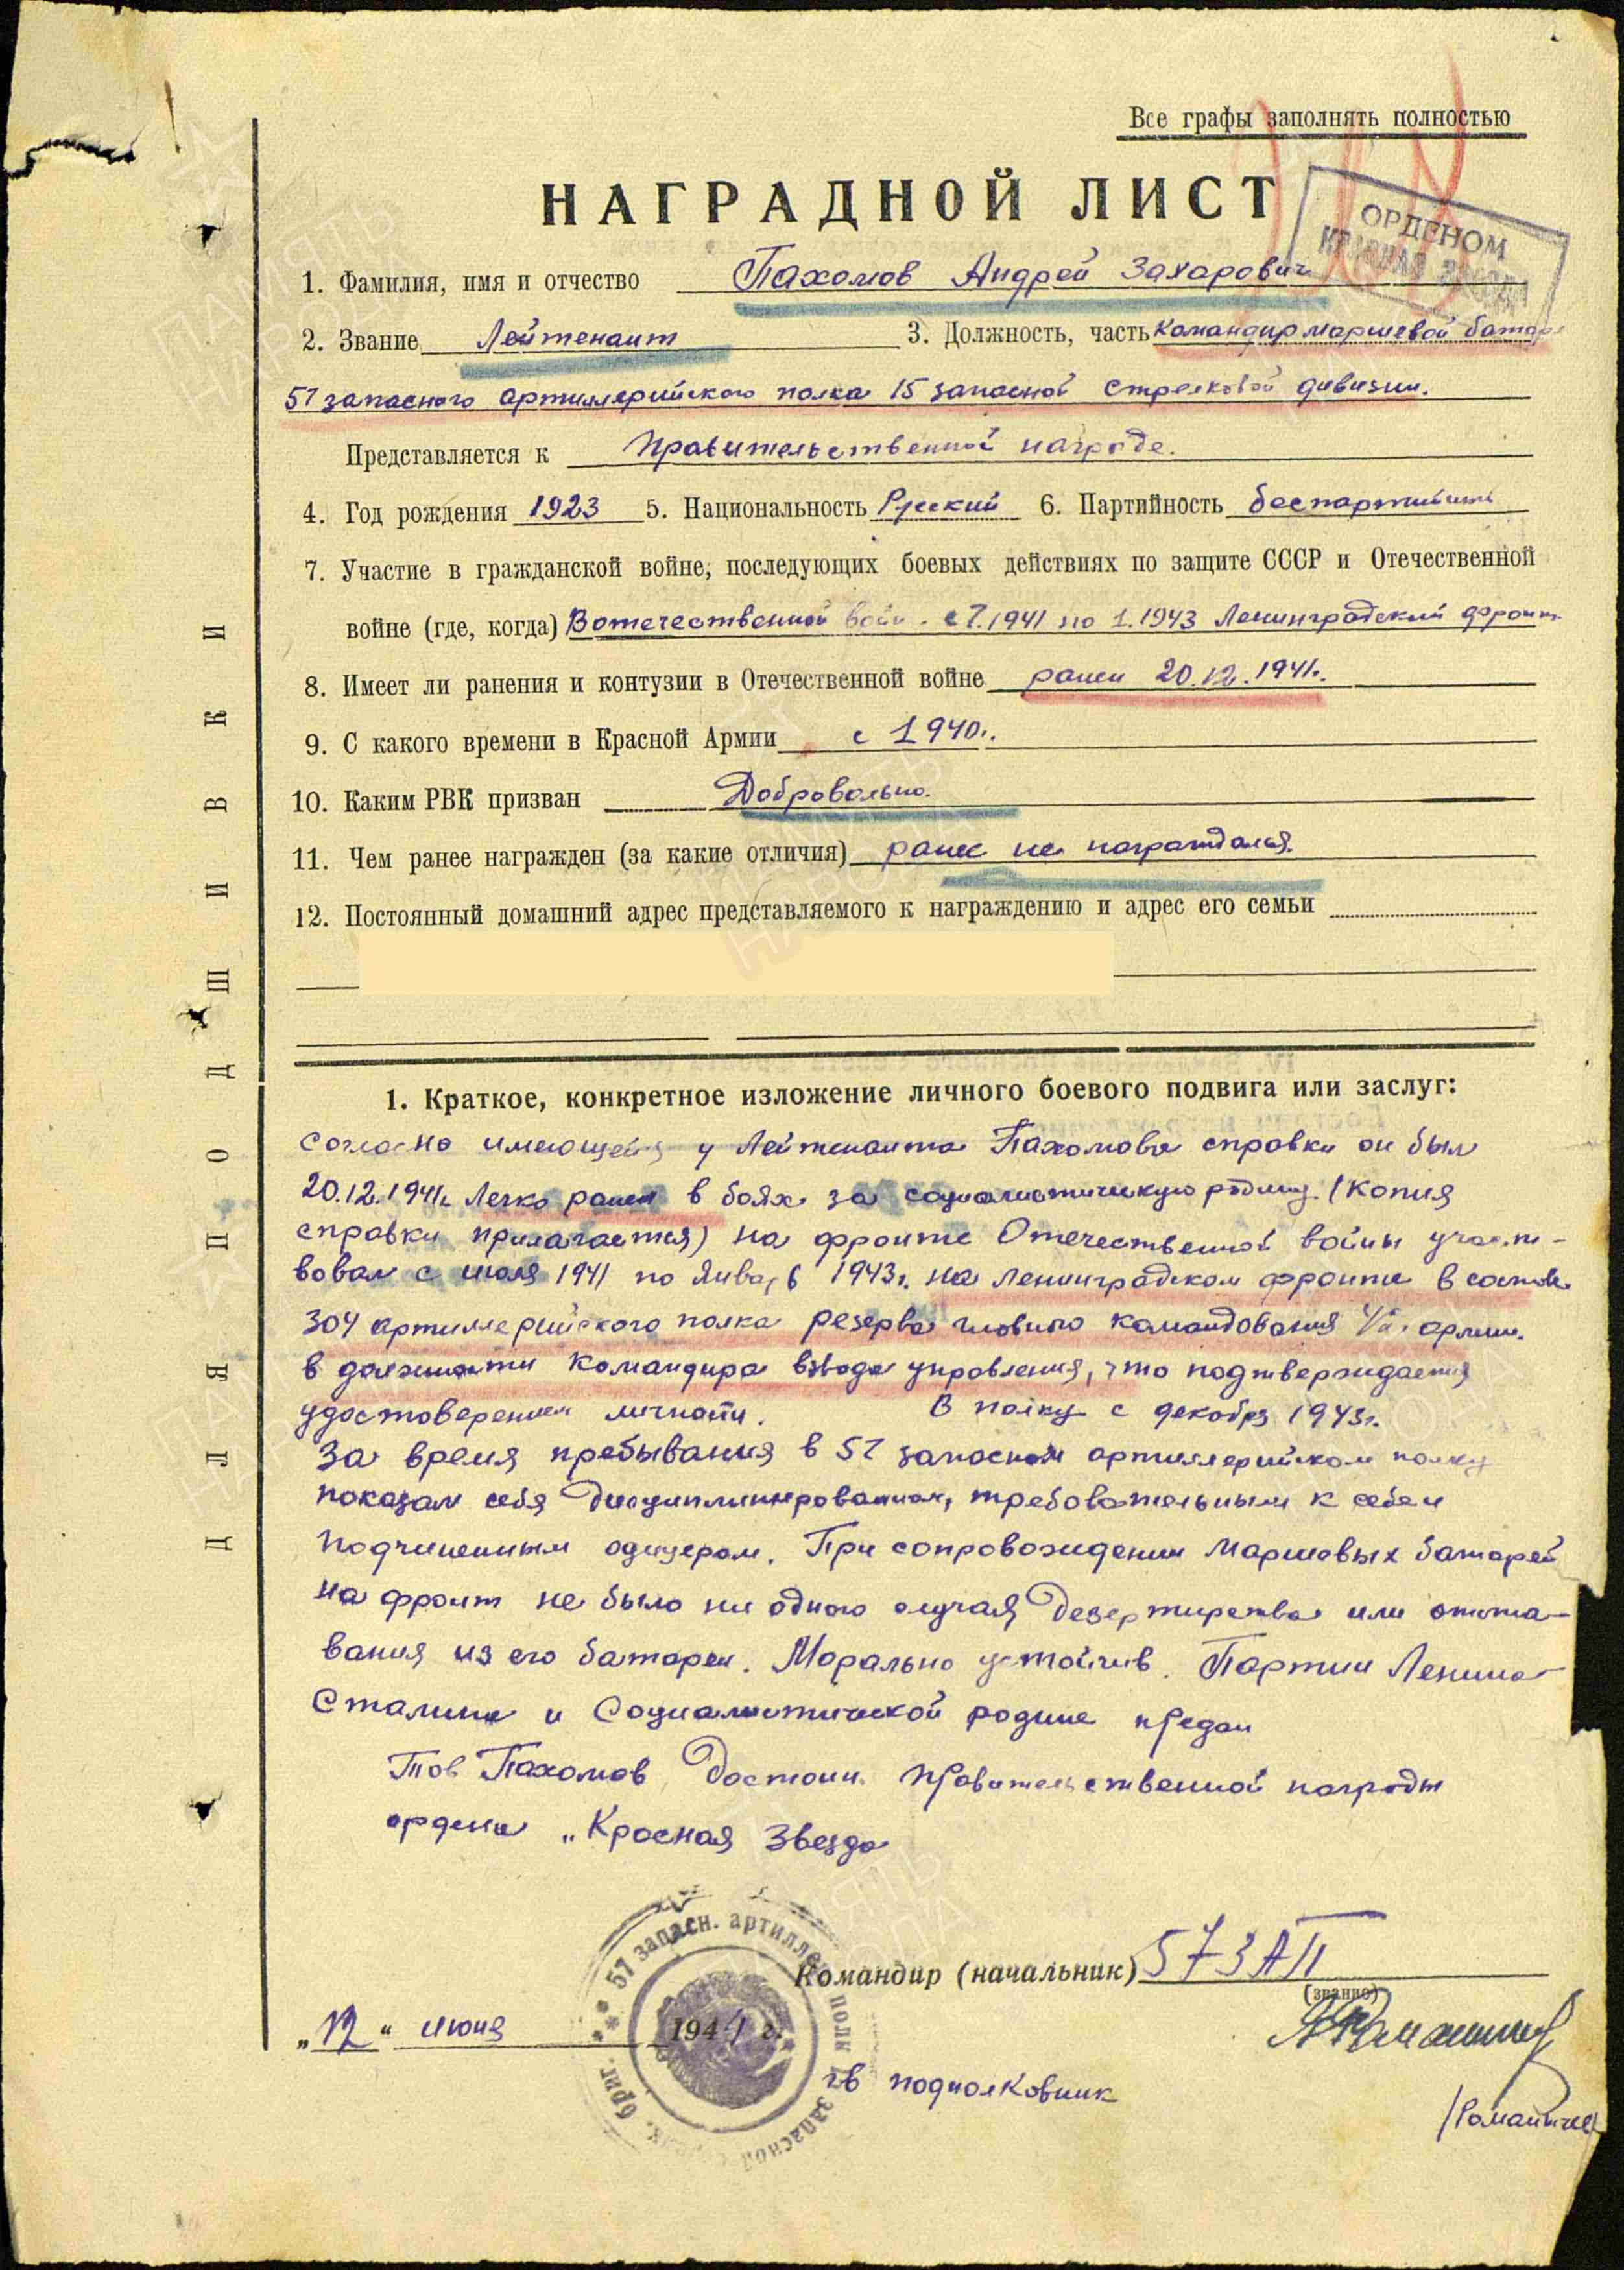 Все графы заполнять полностью
НАГРАДНОЙ ЛИСТ
ОРДЕНОМ
КРАСНАЯ ЗВЕЗДА
1. Фамилия, имя и отчество Пахомов Андрей Захарович
2. Звание Лейтенант 3. Должность, часть Командир маршевой батаре
57 запасного артиллерийского полка 15 запасной стрелковой дивизии.
Представляется к Правительственной награде.
4. Год рождения 1923 5. Национальность Русский 6. Партийность беспартийный
7. Участие в гражданской войне, последующих боевых действиях по защите СССР и Отечественной
войне (где, когда) В отечественной войн. с 7.1941 по 1.1943 Ленинградский фронт
8. Имеет ли ранения и контузии в Отечественной войне ранен 20.12.1941г.
9. С какого времени в Красной Армии с 1940г.
10. Каким РВК призван Добровольно.
11. Чем ранее награжден (за какие отличия) ранее не награждался.
12. Постоянный домашний адрес представляемого к награждению и адрес его семьи
ДЛЯ ПОДШИВКИ
1. Краткое, конкретное изложение личного боевого подвига или заслуг:
Согласно имеющейся у Лейтенанта Пахомова справки он был
20.12.1941г. Легко ранен в боях за социалистическую родину. (Копия
справки прилагается) На фронте Отечественной войны участ-
вовал с июля 1941 по Январь 1943г. на Ленинградском фронте в составе
304 артиллерийского полка резерва главного командования армии.
в должности Командира взвода управления, что подтверждается
удостоверением личности. В полку с декабря 1943г.
За время пребывания в 57 запасном артиллерийском полку
показал себя Дисциплинированным, требовательным к себе и
подчиненным офицером. При сопровождении маршевых батарей
на фронт не было ни одного случая Дезертирства или отста-
вания из его батареи. Морально устойчив. Партии Ленина
Сталина и Социалистической родине предан
Тов Пахомов Достоин Правительственной награды
ордена „Красная Звезда
57 запасн. артиллер. полк 15 запасной стрелк. бриг.
Командир (начальник) 57 ЗАП
(звание)
„12“ июня 1944 г.
гв подполковник